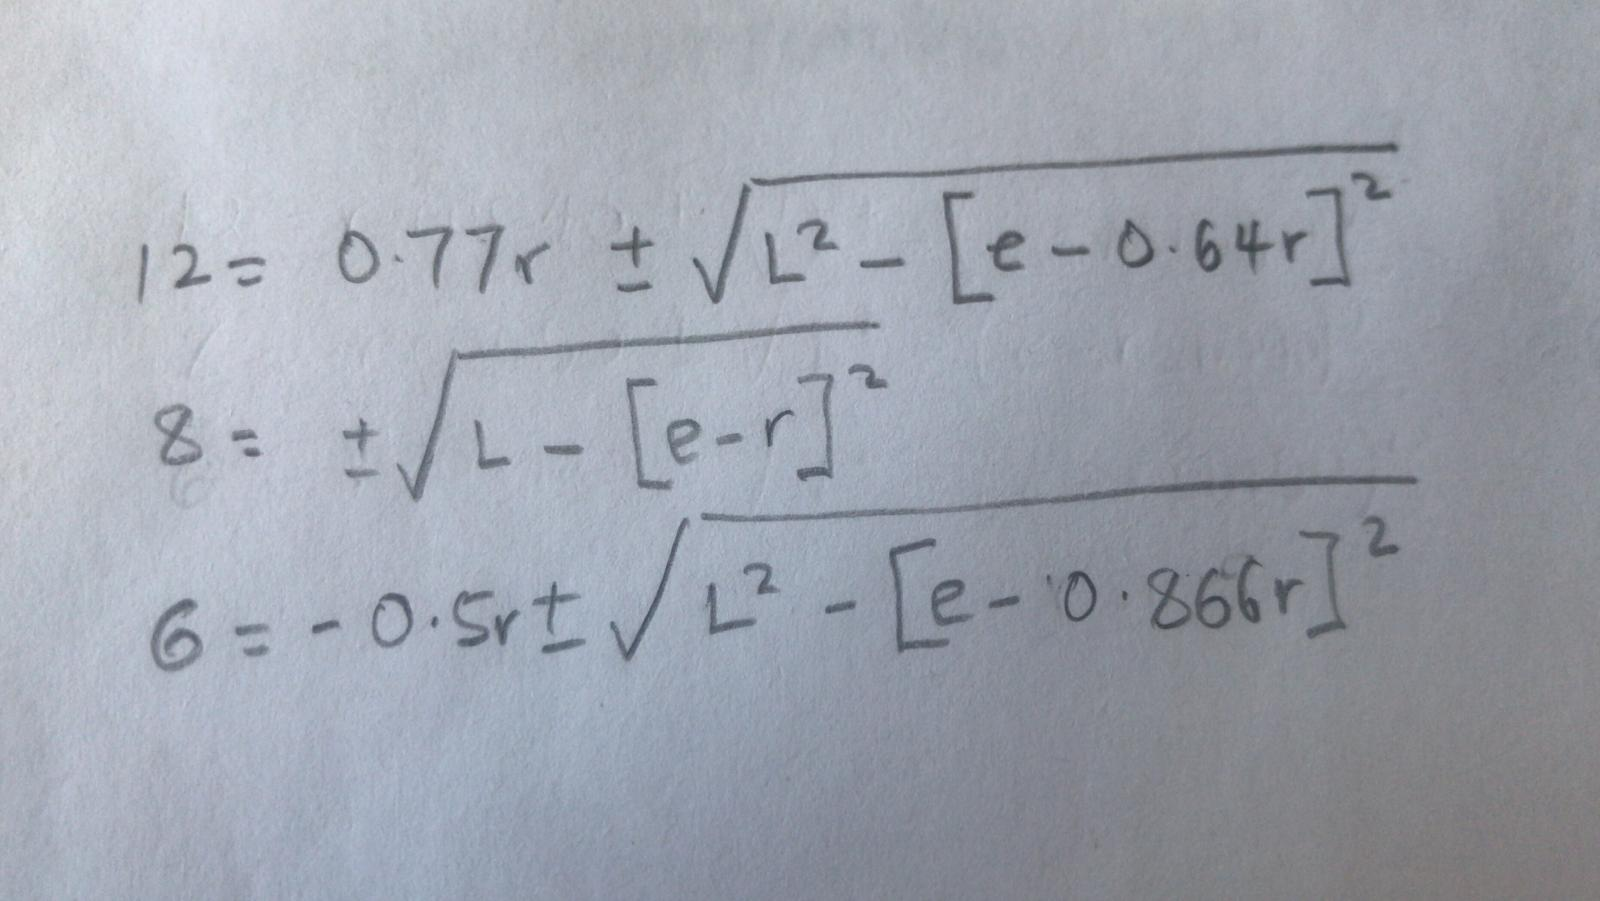 12 = 0.77r ± √L² - [e - 0.64r]²
8 = ± √L - [e - r]²
6 = - 0.5r ± √L² - [e - 0.866r]²